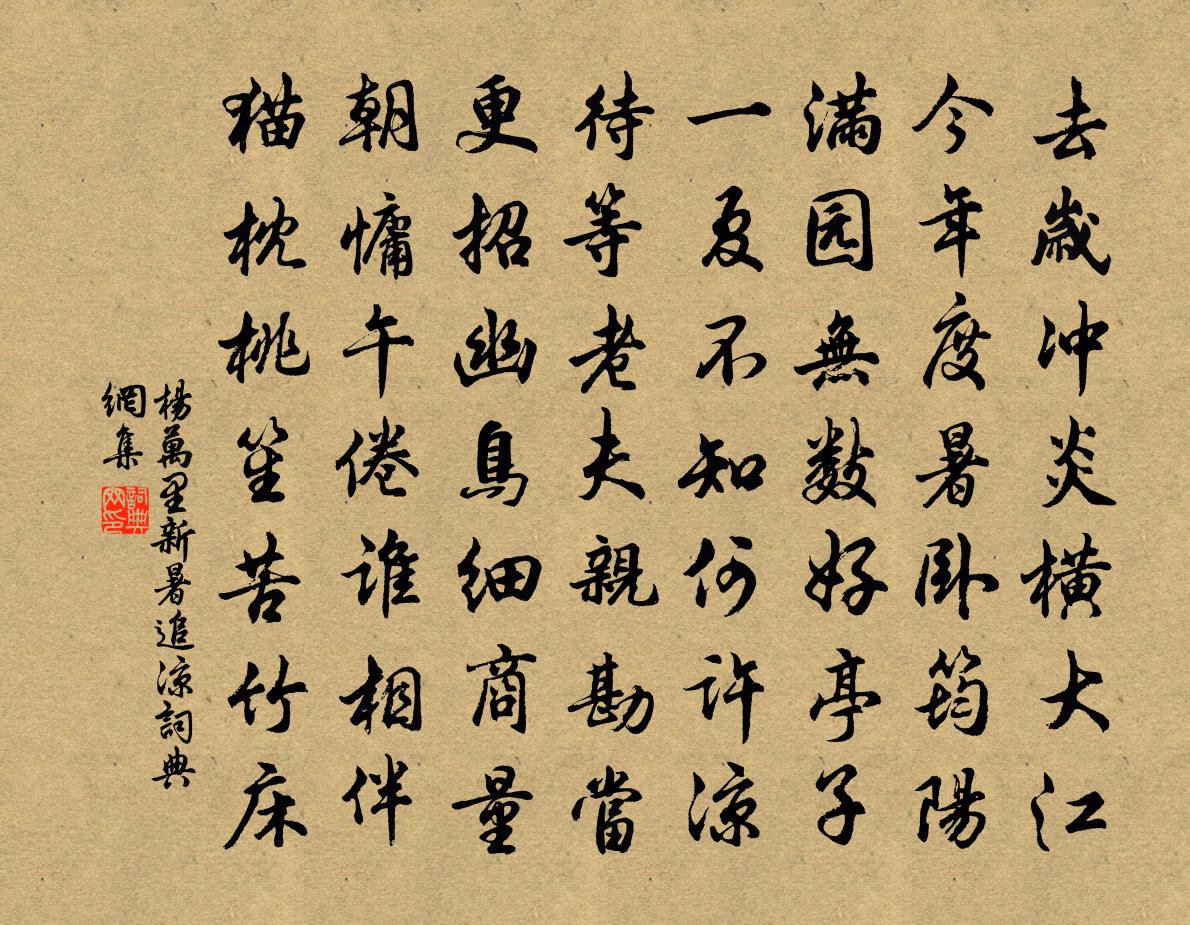 去歲冲炎橫大江
今年度暑卧筠陽
满园無數好亭子
一夏不知何许凉
待等老夫親勘當
更招幽鳥细商量
朝慵午倦谁相伴
猫枕桃笙苦竹床
楊萬里新暑追凉詞典
網集
詞典
网印